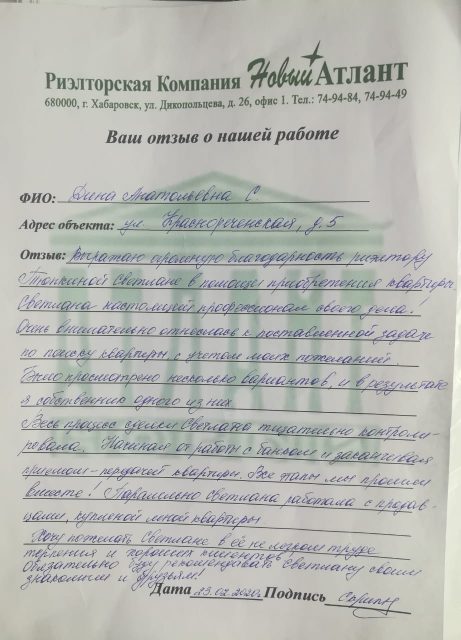 Риэлторская Компания Новый Атлант
680000, г. Хабаровск, ул. Дикопольцева, д. 26, офис 1. Тел.: 74-94-84, 74-94-49
Ваш отзыв о нашей работе
ФИО: Дина Анатольевна С.
Адрес объекта: ул. Краснореченская, д. 5
Отзыв: Выражаю огромную благодарность риэлтору
Тюпкиной Светлане в помощи приобретения квартиры.
Светлана настоящий профессионал своего дела.
Очень внимательно отнеслась к поставленной задаче
по поиску квартиры, с учетом моих пожеланий.
Было просмотрено несколько вариантов, и в результате
я собственник одного из них.
Весь процесс сделки Светлана тщательно контроли-
ровала. Начиная от работы с банком и заканчивая
приемом-передачей квартиры. Все этапы мы прошли
вместе! Паралельно Светлана работала с продав-
цами, купленой мной квартиры
Хочу пожелать Светлане в её не легком труде
терпения и хороших клиентов!
Обязательно буду рекомендовать Светлану своим
знакомым и друзьям!
Дата 23.02.2020г. Подпись